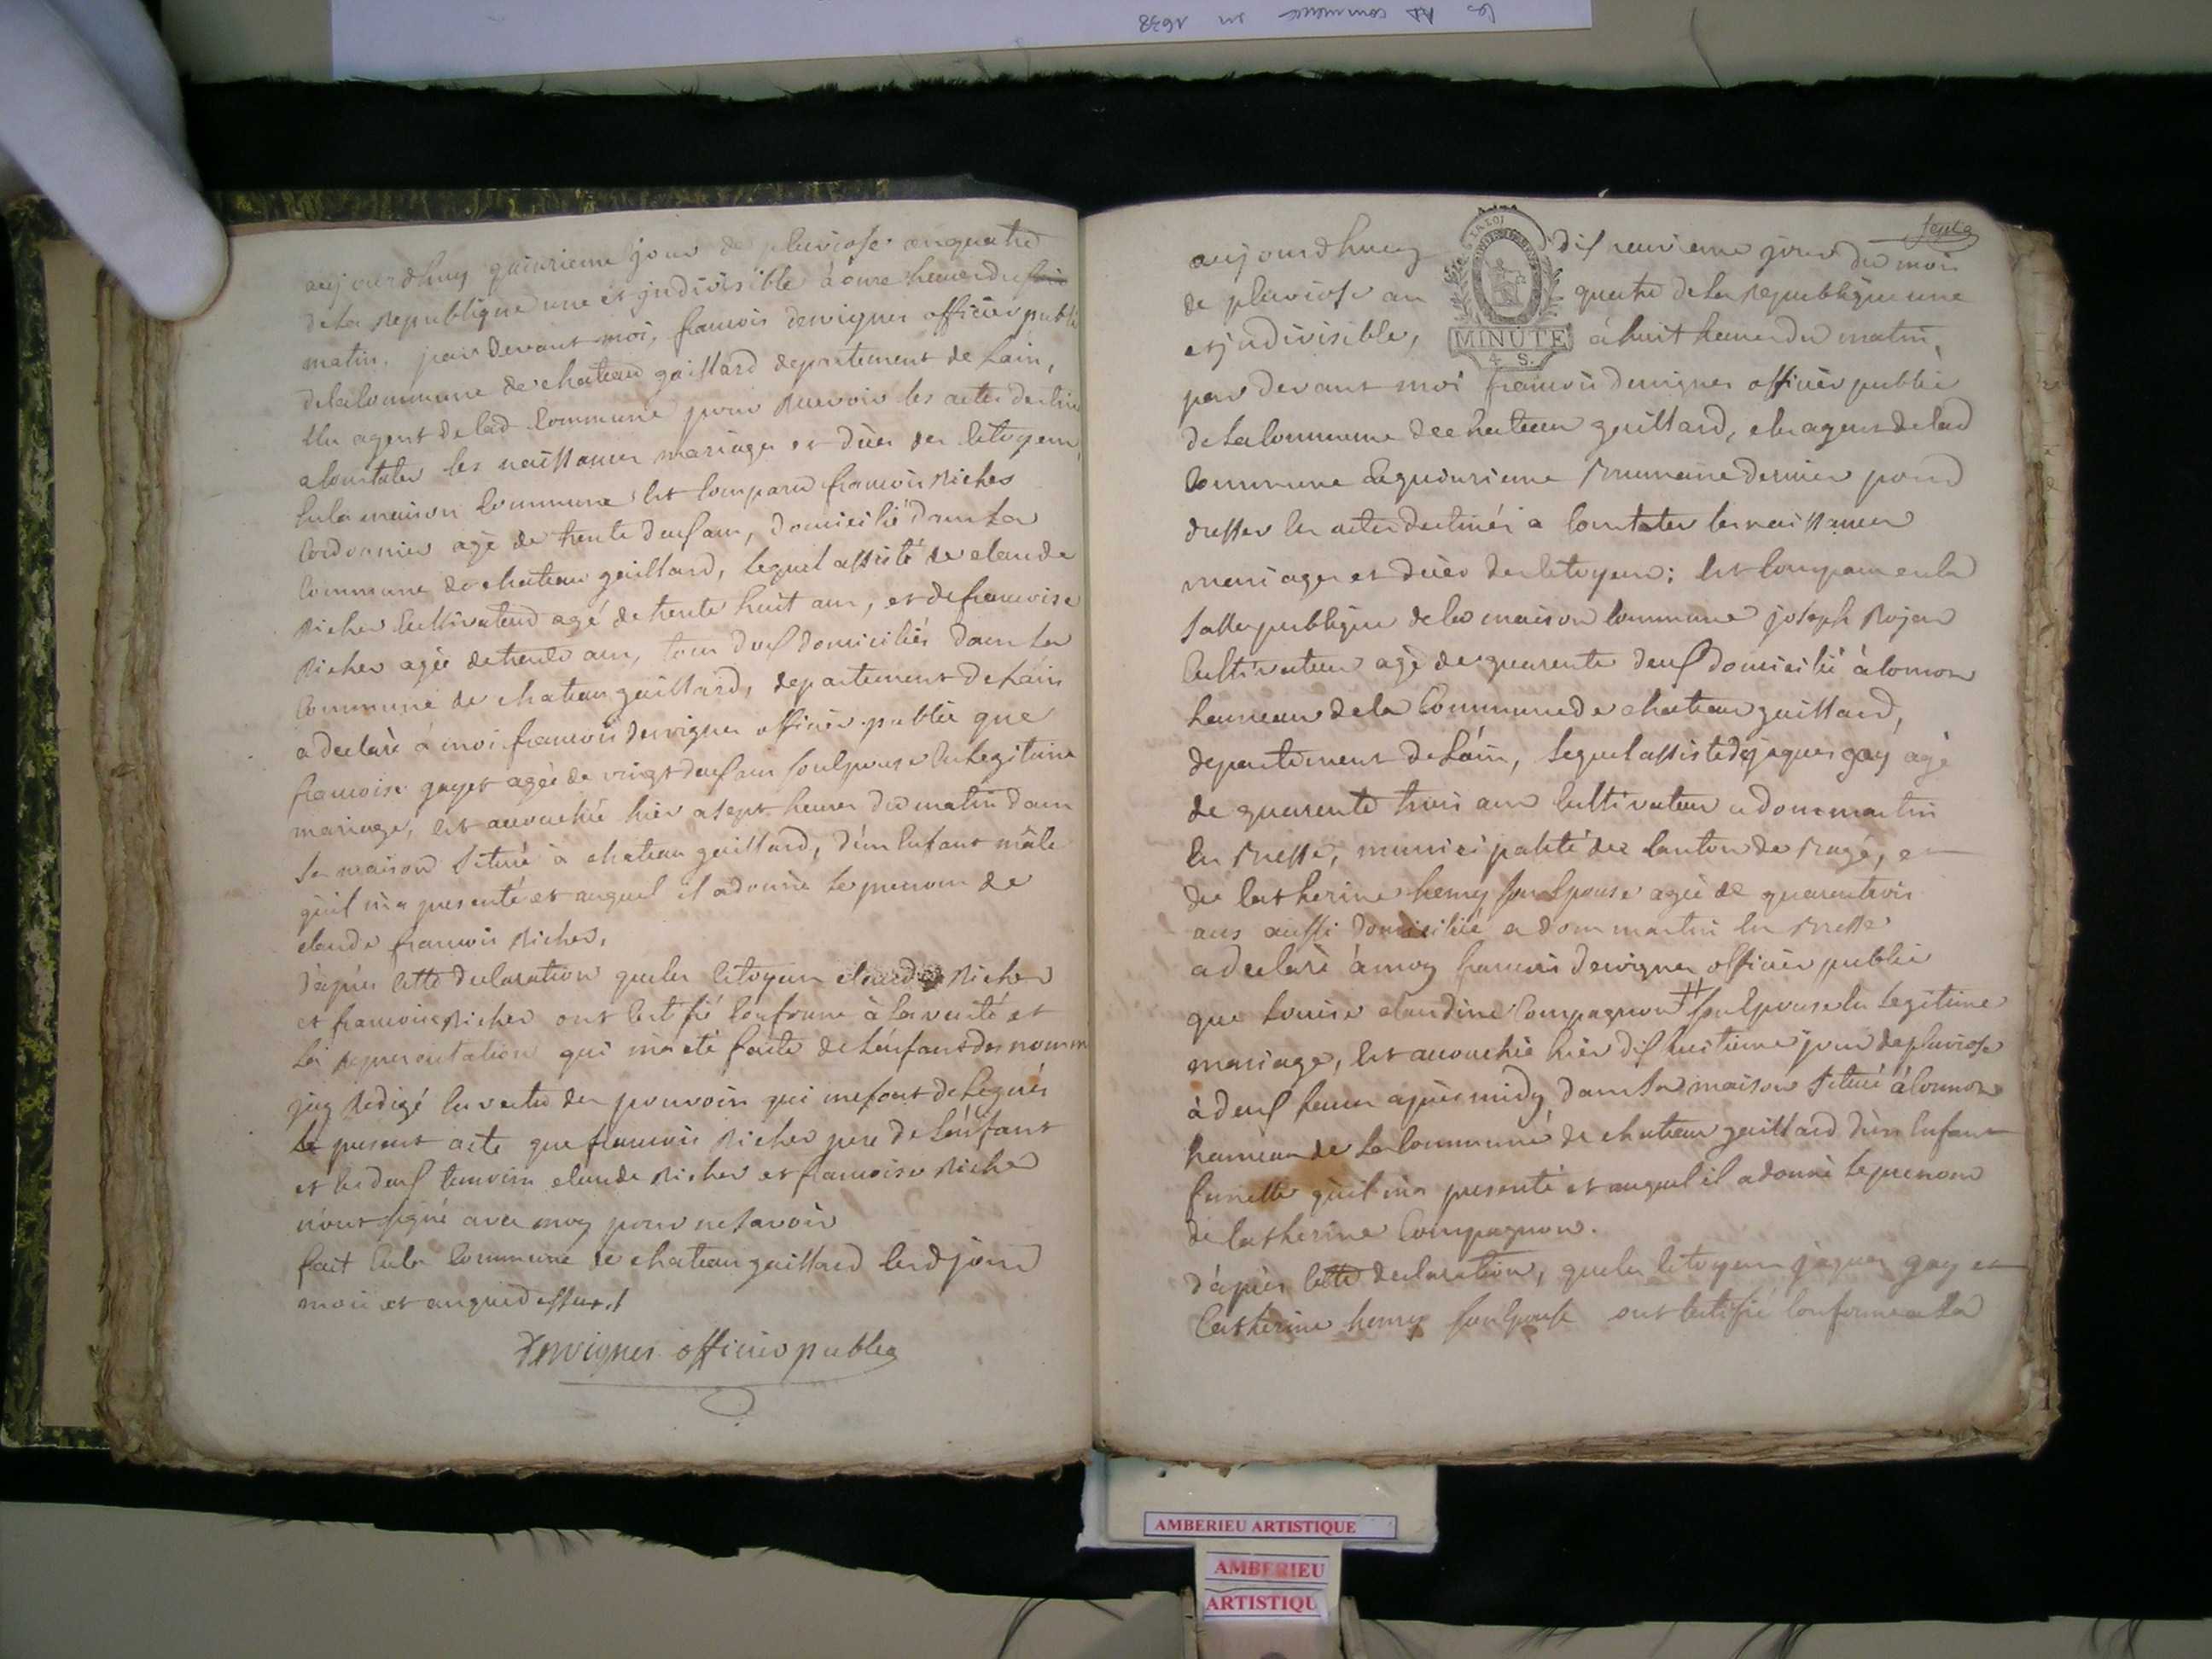 les Bt commence en 1638
aujourdhuy quinzieme jour de pluviose an quatre
de la Republique une et jndivisible à onze heures du soir
matin. par devant moi, francois dervignes officier public
de la Commune de chateau gaillard departement de Lain,
Elu agent de lad Commune pour recevoir les actes destinés
a constater les naissances mariages et décès des Citoyens,
En la maison Commune Est Comparu francois Richer
Cordonnier agé de trente deux ans, domicilié dans La
Commune de chateau gaillard, lequel assisté de claude
Richer Cultivateur agé de trente huit ans, et de francoise
Richer agée de trente ans, tous deux domiciliés dans La
Commune de chateau gaillard, departement de Lain
a declaré à moi francois dervignes officier public que
francoise gayet agée de vingt deux ans son Epouse En Legitime
mariage, Est accouchée hier a sept heures du matin dans
Sa maison Située à chateau gaillard, d'un Enfant mâle
qu'il m'a presenté et auquel il a donné le prenom de
claude francois Richer,
d'après Cette declaration que les Citoyens claude Richer
et francoise Richer ont Certifié Conforme à la verité et
La representation qui m'a eté faite de L'enfant denommé
jay Redigé En vertu des pouvoirs qui me sont delegués
Le present acte que francois Richer pere de L'enfant
et les deux temoins claude Richer et francoise Richer
n'ont signé avec moy pour ne savoir
fait En la Commune de chateau gaillard Les d jour
mois et an que dessus
Dervignes officier public
Septe
aujourdhuy dix neuvieme jour du mois
de pluviose an quatre de la Republique une
et jndivisible, à huit heures du matin,
MINUTE
4 S.
par devant moi francois dervignes officier public
de la Commune de chateau gaillard, elu agent de lad
Commune Le quinzieme Brumaire dernier pour
dresser les actes destinés a Constater les naissances
mariages et décès des Citoyens; Est Comparu en la
Salle publique de la maison Commune joseph Rojon
Cultivateur agé de quarente deux domicilié à Cormoz
hameau de la Commune de chateau gaillard,
departement de Lain, Lequel assisté de jaques gay agé
de quarente trois ans Cultivateur a dommartin
En Bresse, municipalité du Canton de Bagé, et
de Catherine henry son Epouse agée de quarentrois
ans aussi domiciliée a dommartin En Bresse
a declaré à moy francois dervignes officier public
que Louise claudine Compagnon # son Epouse En Legitime
mariage, Est accouchée hier dix huitieme jour de pluviose
à deux heures après midy, dans Sa maison Située à Cormoz
hameau de La Commune de chateau gaillard d'un Enfant
femelle qu'il m'a presenté et auquel il a donné le prenom
de Catherine Compagnon.
d'après Cette declaration, que les Citoyens jaques gay et
Catherine henry son Epouse ont Certifié Conforme a La
AMBERIEU ARTISTIQUE
AMBERIEU
ARTISTIQU